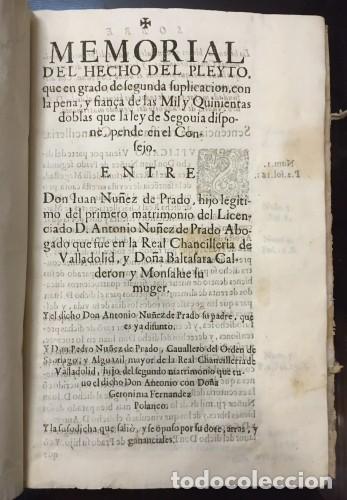 MEMORIAL
DEL HECHO DEL PLEYTO.
que en grado de segunda suplicacion, con
la pena, y fiança de las Mil y Quinientas
doblas que la ley de Segouia dispo-
ne, pende en el Con-
sejo.
ENTRE
Don Iuan Nuñez de Prado, hijo legiti-
mo del primero matrimonio del Licen-
ciado D. Antonio Nuñez de Prado Abo-
gado que fue en la Real Chancilleria de
Valladolid, y Doña Baltasara Cal-
deron y Monsalue su
muger.
Y el dicho Don Antonio Nuñez de Prado su padre, que
es ya difunto.
Y Don Pedro Nuñez de Prado, Cauallero del Orden de
Santiago, y Alguazil mayor de la Real Chancilleria de
Valladolid, hijo del segundo matrimonio que tu-
uo el dicho Don Antonio con Doña
Geronima Fernandez
Polanco.
Y la susodicha que salio, y se opuso por su dote, arras, y
gananciales.
Num. 1.
todocoleccion.net